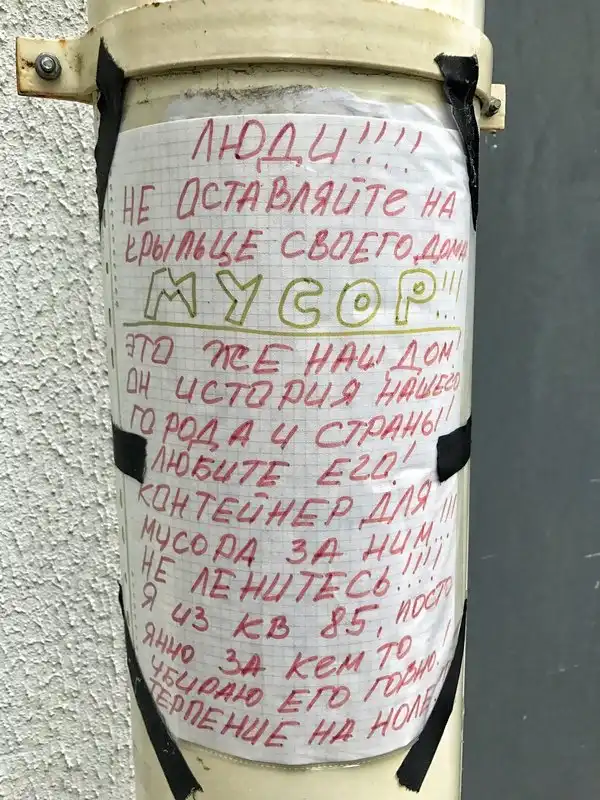 ЛЮДИ!!!!
НЕ ОСТАВЛЯЙТЕ НА
КРЫЛЬЦЕ СВОЕГО ДОМА
МУСОР!!!
ЭТО ЖЕ НАШ ДОМ!
ОН ИСТОРИЯ НАШЕГО
ГОРОДА И СТРАНЫ!
ЛЮБИТЕ ЕГО!
КОНТЕЙНЕР ДЛЯ
МУСОРА ЗА НИМ...!!!
НЕ ЛЕНИТЕСЬ!!!!
Я ИЗ КВ 85, ПОСТО
ЯННО ЗА КЕМ ТО
УБИРАЮ ЕГО ГОВНО.!
ТЕРПЕНИЕ НА НОЛЕ